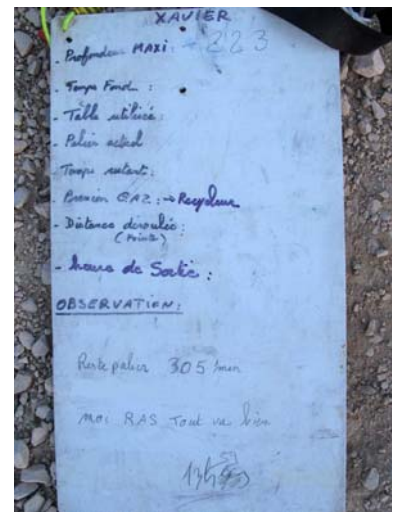 XAVIER
- Profondeur MAXI : - 223
- Temps Fond :
- Table utilisée :
- Palier actuel
Temps restant :
- Pression GAZ : → Recycleur
- Distance déroulée :
(Pointe)
- heure de Sortie :
OBSERVATION :
Reste palier 305 min
MOI RAS Tout va bien